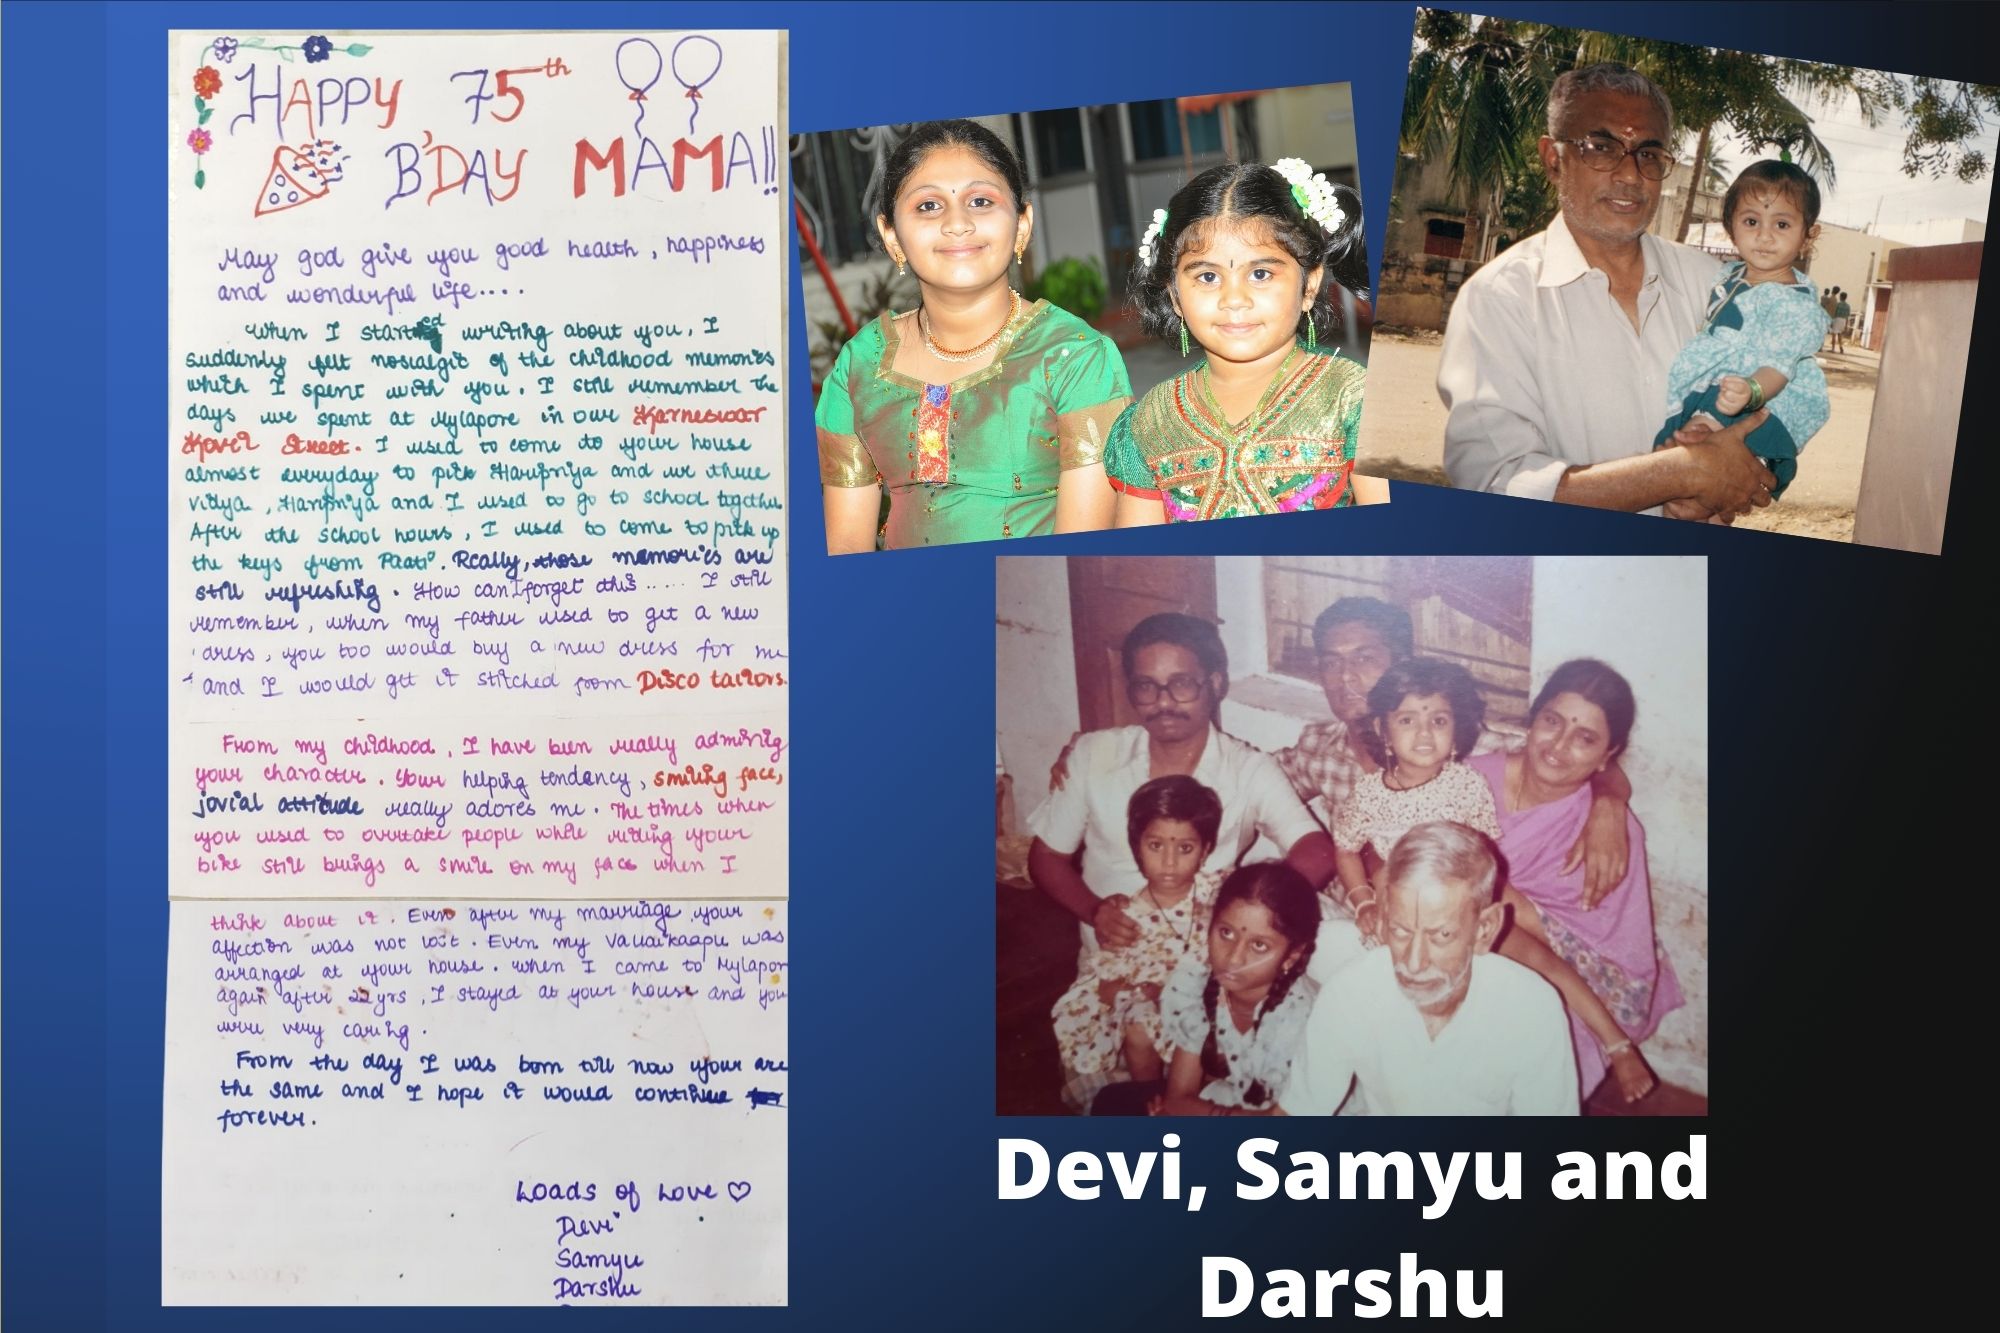 HAPPY 75th
B'DAY MAMA!!
May god give you good health, happiness
and wonderful life....
When I started writing about you, I
suddenly felt nostalgit of the childhood memories
which I spent with you. I still remember the
days we spent at Mylapore in our Karneswar
Kovil Street. I used to come to your house
almost everyday to pick Haripriya and we three
Vidya, Haripriya and I used to go to school together
After the school hours, I used to come to pick up
the keys from Paati. Really, those memories are
still refreshing. How can I forget this..... I still
remember, when my father used to get a new
dress, you too would buy a new dress for me
and I would get it stitched from Disco tailors.
From my childhood, I have been really admiring
your character. Your helping tendency, smiling face,
jovial attitude really adores me. The times when
you used to overtake people while riding your
bike still brings a smile on my face when I
think about it. Even after my marriage your
affection was not lost. Even my Valaikaapu was
arranged at your house. When I came to Mylapor
again after 22 yrs, I stayed at your house and you
were very caring.
From the day I was born till now your are
the same and I hope it would continue
forever.
Loads of Love ♡
Devi
Samyu
Darshu
Devi, Samyu and
Darshu